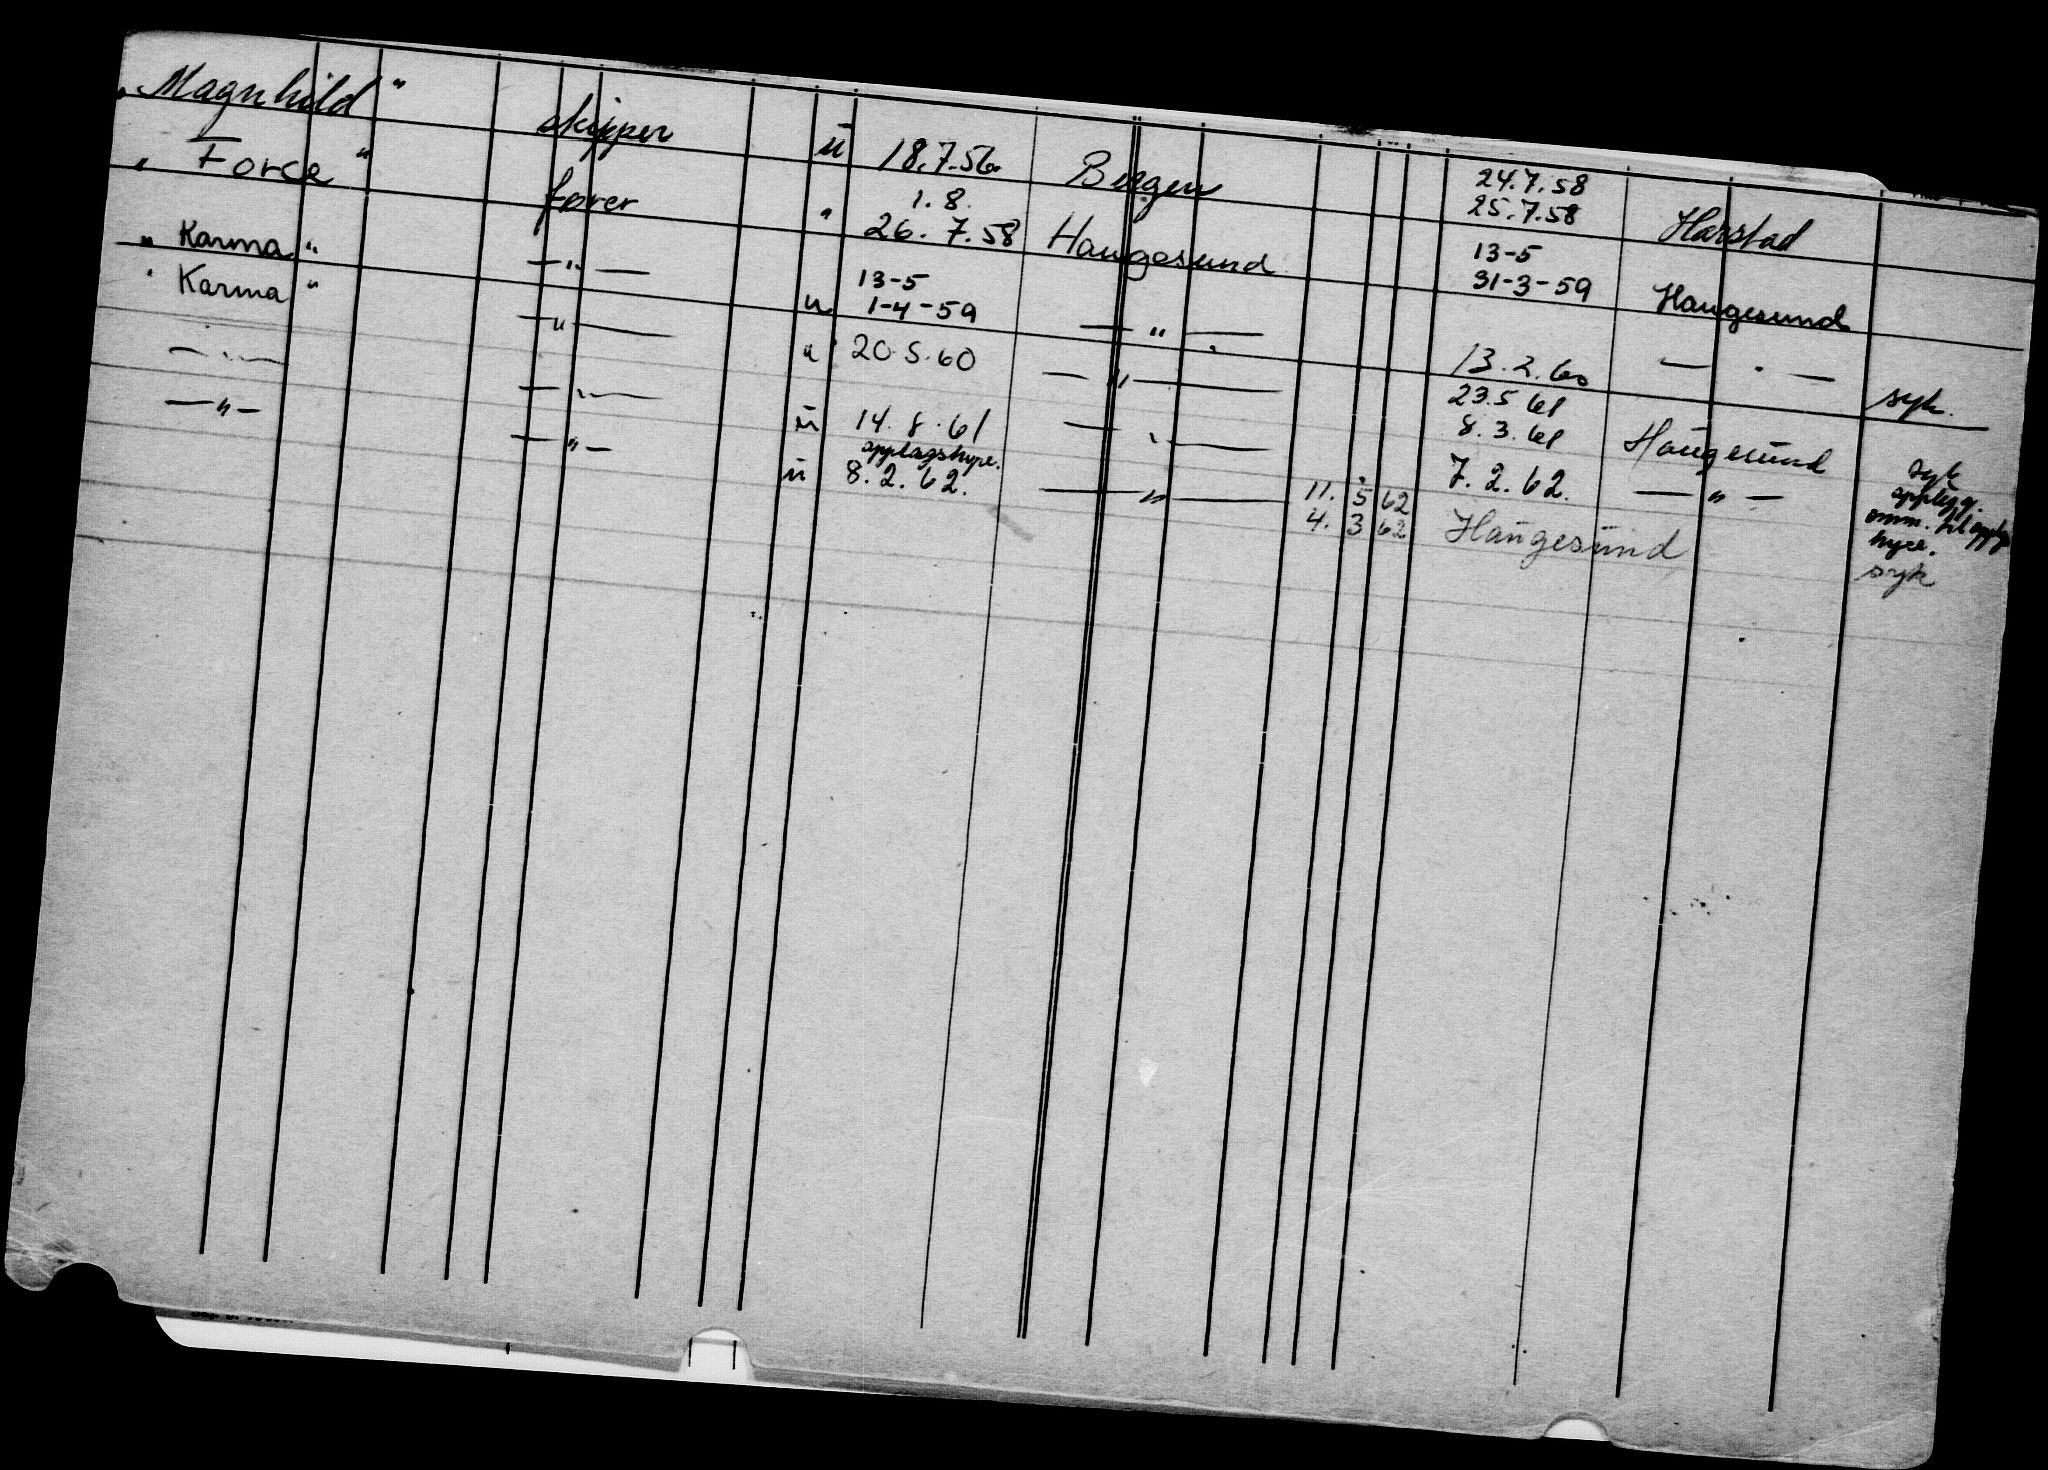 "Magnhild" skipper u 18.7.56 Bergen 24.7.58 Harstad
1.8. 25.7.58
"Force" fører " 26.7.58 Haugesund 13-5
31-3-59 Haugesund
"Karma" —"— 13-5
u 1-4-59 —"— 13.2.60 —"— syk.
"Karma" —"— u 20.5.60 —"— 23.5.61
8.3.61 Haugesund syk
—"— —"— u 14.8.61 —"— 7.2.62. —"— opplegg.
opplagshyre. omm. til
—"— —"— u 8.2.62. —"— 11. 5 62 hyre.
4. 3 62 Haugesund syk